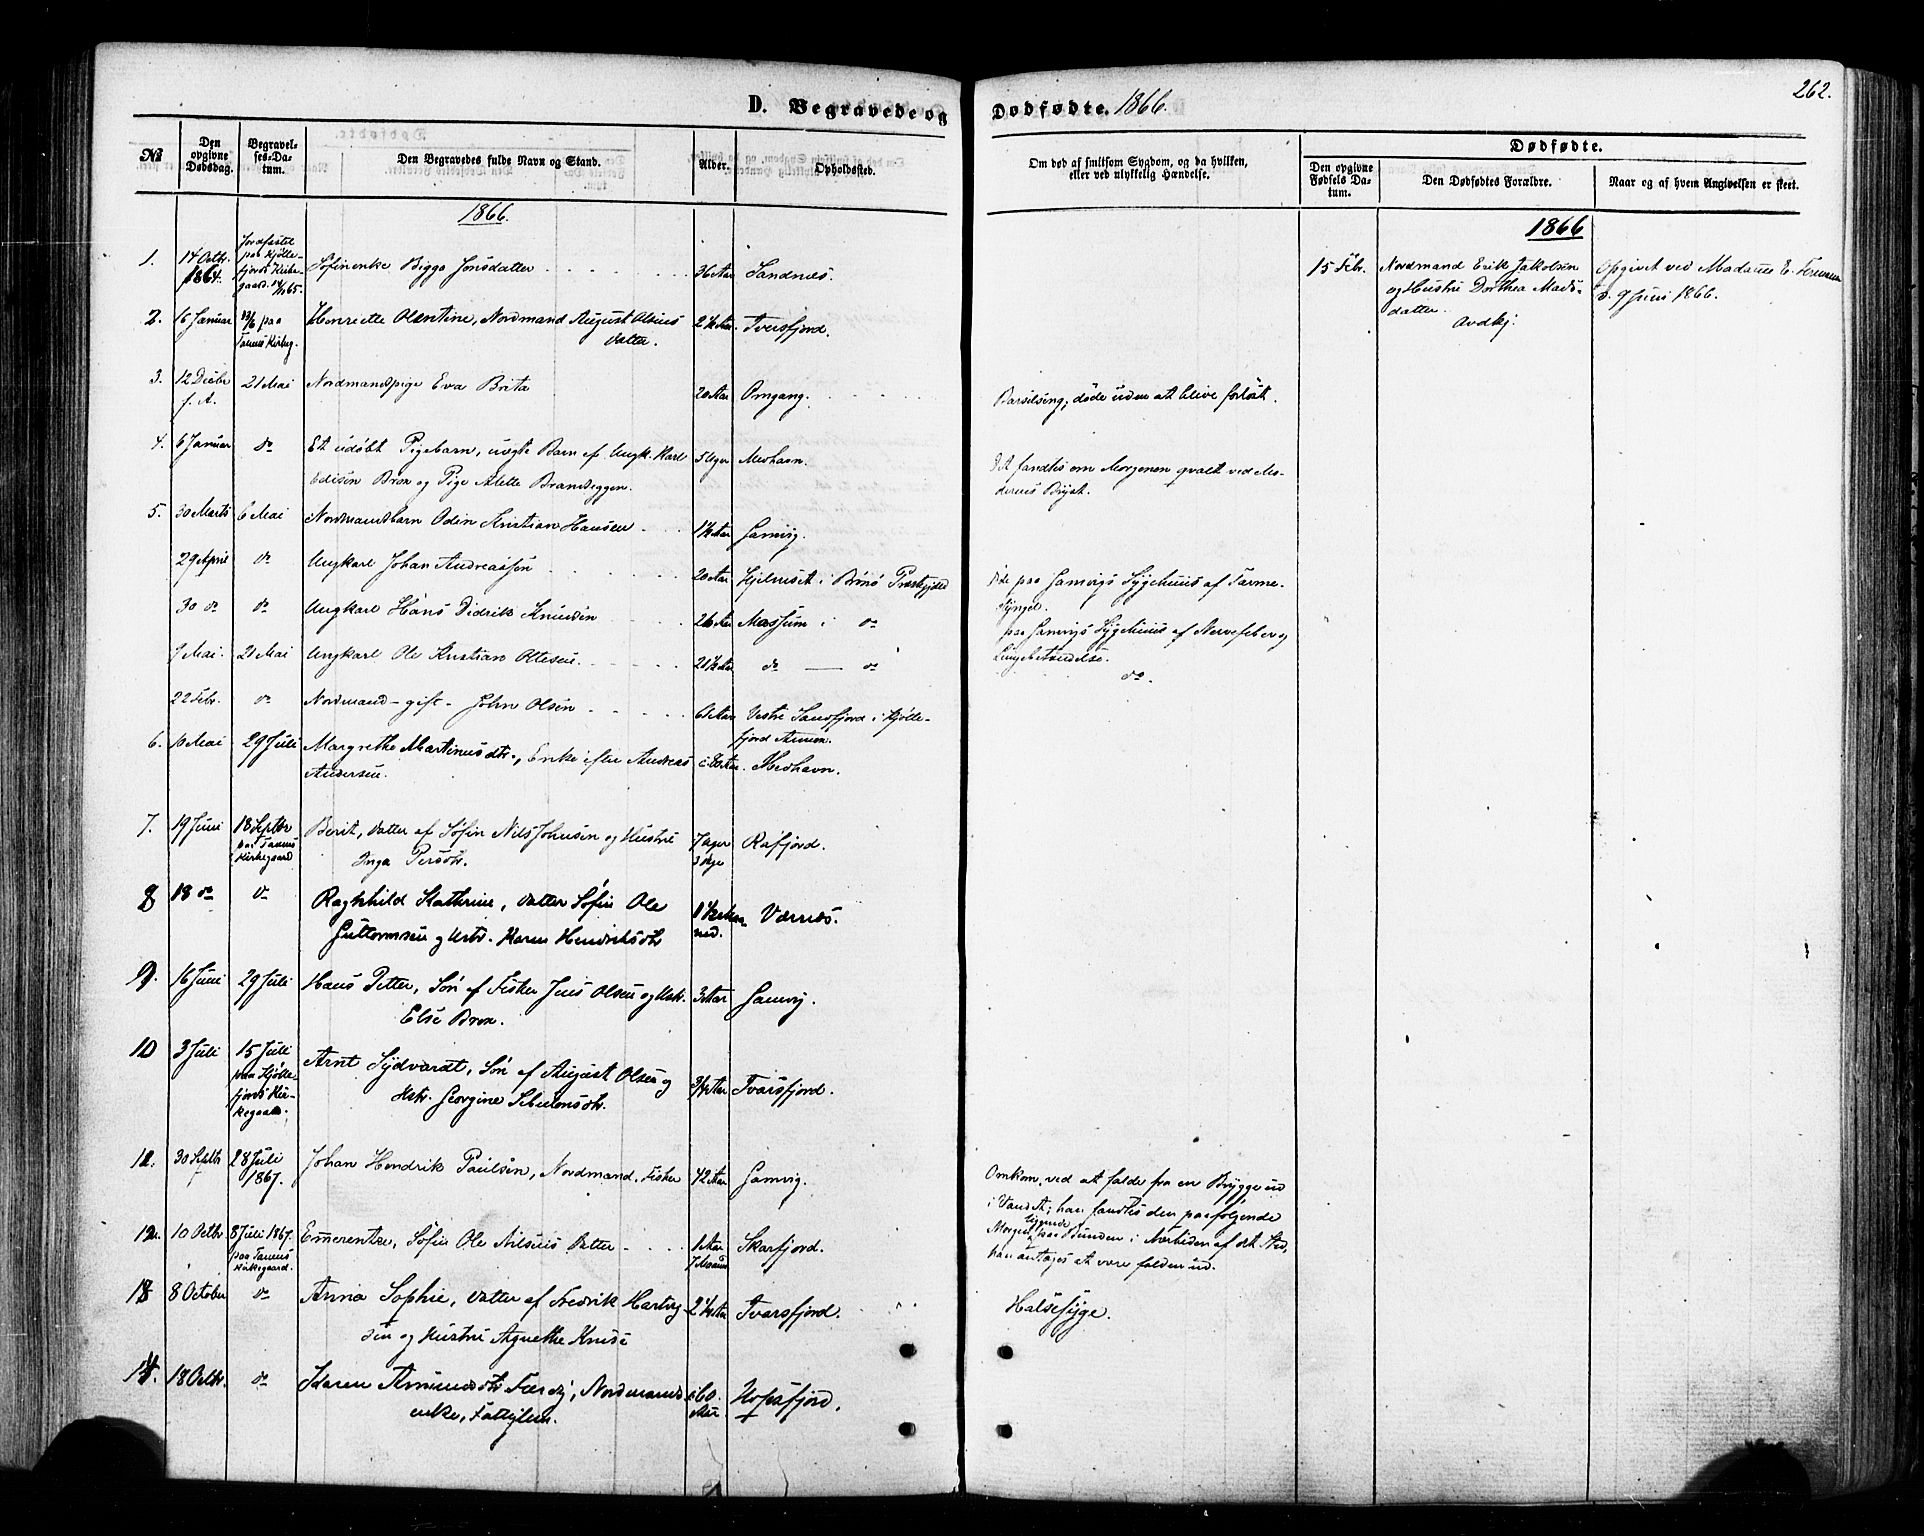 262.
D. Begravede og Dødfødte. 1866.
No
Den opgivne Dødsdag.
Begravelses-Datum.
Den Begravedes fulde Navn og Stand.
Alder.
Opholdsted.
Om død af smitsom Sygdom, og da hvilken, eller ved ulykkelig Hændelse.
Dødfødte.
Den opgivne Fødsels Datum.
Den Dødfødtes Forældre.
Naar og af hvem Angivelsen er skeet.
1866.
1866
1. 14 Octbr. 1864. Jordfæstet paa Kjøllefjords Kirkegaard Søfinenke Bigga Jonsdatter 36 Aar Sandnæs.
15 Febr. Nordmand Erik Jakobsen og Hustru Dorthea Madsdatter.
Opgivet ved Madame E.
d. 9 Juni 1866.
2. 16 Januar paa Tanens Kirkeg. Henriette Olentine, Nordmand August Olsens Datter. 2½ Aar. Tversfjord.
3. 12 Decbr f. A. 21 Mai Nordmandspige Eva Brita 20 Aar Omgang.
Barselseng, døde uden at blive forløst.
4. 6 Januar do Et udøbt Pigebarn, uægte Barn af Ungk. Karl
Edisen Brox og Pige Alette Brandeggen. 5 Uger Mehavn.
Det fandtes om Morgenen qvalt ved Moderens Bryst.
5. 30 Marts 6 Mai Nordmandsbarn Odin Kristian Hansen 1½ Aar Gamvig.
29 April do Ungkarl Johan Andreassen 20 Aar Hjelmset i Brønø Præstegjeld
Døde paa Gamvigs Sygehuus af
30 do do Ungkarl Hans Didrik Knudsen 26 Aar i do
paa Gamvigs Sygehuus af Nervefeber og Lungebetændelse.
9 Mai. 21 Mai Ungkarl Ole Kristian Ottesen 21½ Aar do — do
do.
22 Febr. do Nordmand - gift - John Olsen 61 Aar Vestre Sandfjord i Kjøllefjord Annex.
6. 10 Mai 29 Juli Margrethe Martinusdtr., Enke efter Andreas
Andersen. c 80 Aar. Mehavn.
7. 19 Juni 18 Septbr paa Tanens Kirkegaard Berit, Datter af Søfin Nils Johnsen og Hustru
Inga Persdtr. 7 Uger Rafjord.
8 18 do do Raghnhild Kathrine, Datter Søfin Ole
Guttormsen og Hstr. Karen Hendriksdtr Værnæs.
9. 16 Juni 29 Juli Hans Petter, Søn af Fisker Jens Olsen og Hstr.
Else Brox. 3 Aar Gamvig.
10 3 Juli 15 Juli paa Kjøllefjords Kirkegaard. Arnt Sydvardt, Søn af August Olsen og
Hstr. Georgine 3/4 Aar Tvarsfjord.
12. 30 Septbr 28 Juli 1867. Johan Hendrik Paulsen, Nordmand, Fisker 42 Aar Gamvig.
Omkom, ved at falde fra en Brygge ud
i Vandet; han fandtes den paafølgende
Morgen liggende paa Bunden i Nærheden af det Sted,
han antages at være falden ud.
12. 10 Octbr 8 Juli 1867. paa Tanens Kirkegaard. Emerentse, Søfin Ole Nilsens Datter 1 Aar 7 Maaned Skarfjord.
13 8 October do Anna Sophie, Datter af Fredrik Hartvigsen og Hustru Agnethe 2½ Aar Tvarsfjord.
Halsesyge.
14. 18 Octbr. do Karen Amundsdtr Nordmands
enke, Fattiglem. c 60 Aar. Hopsfjord.